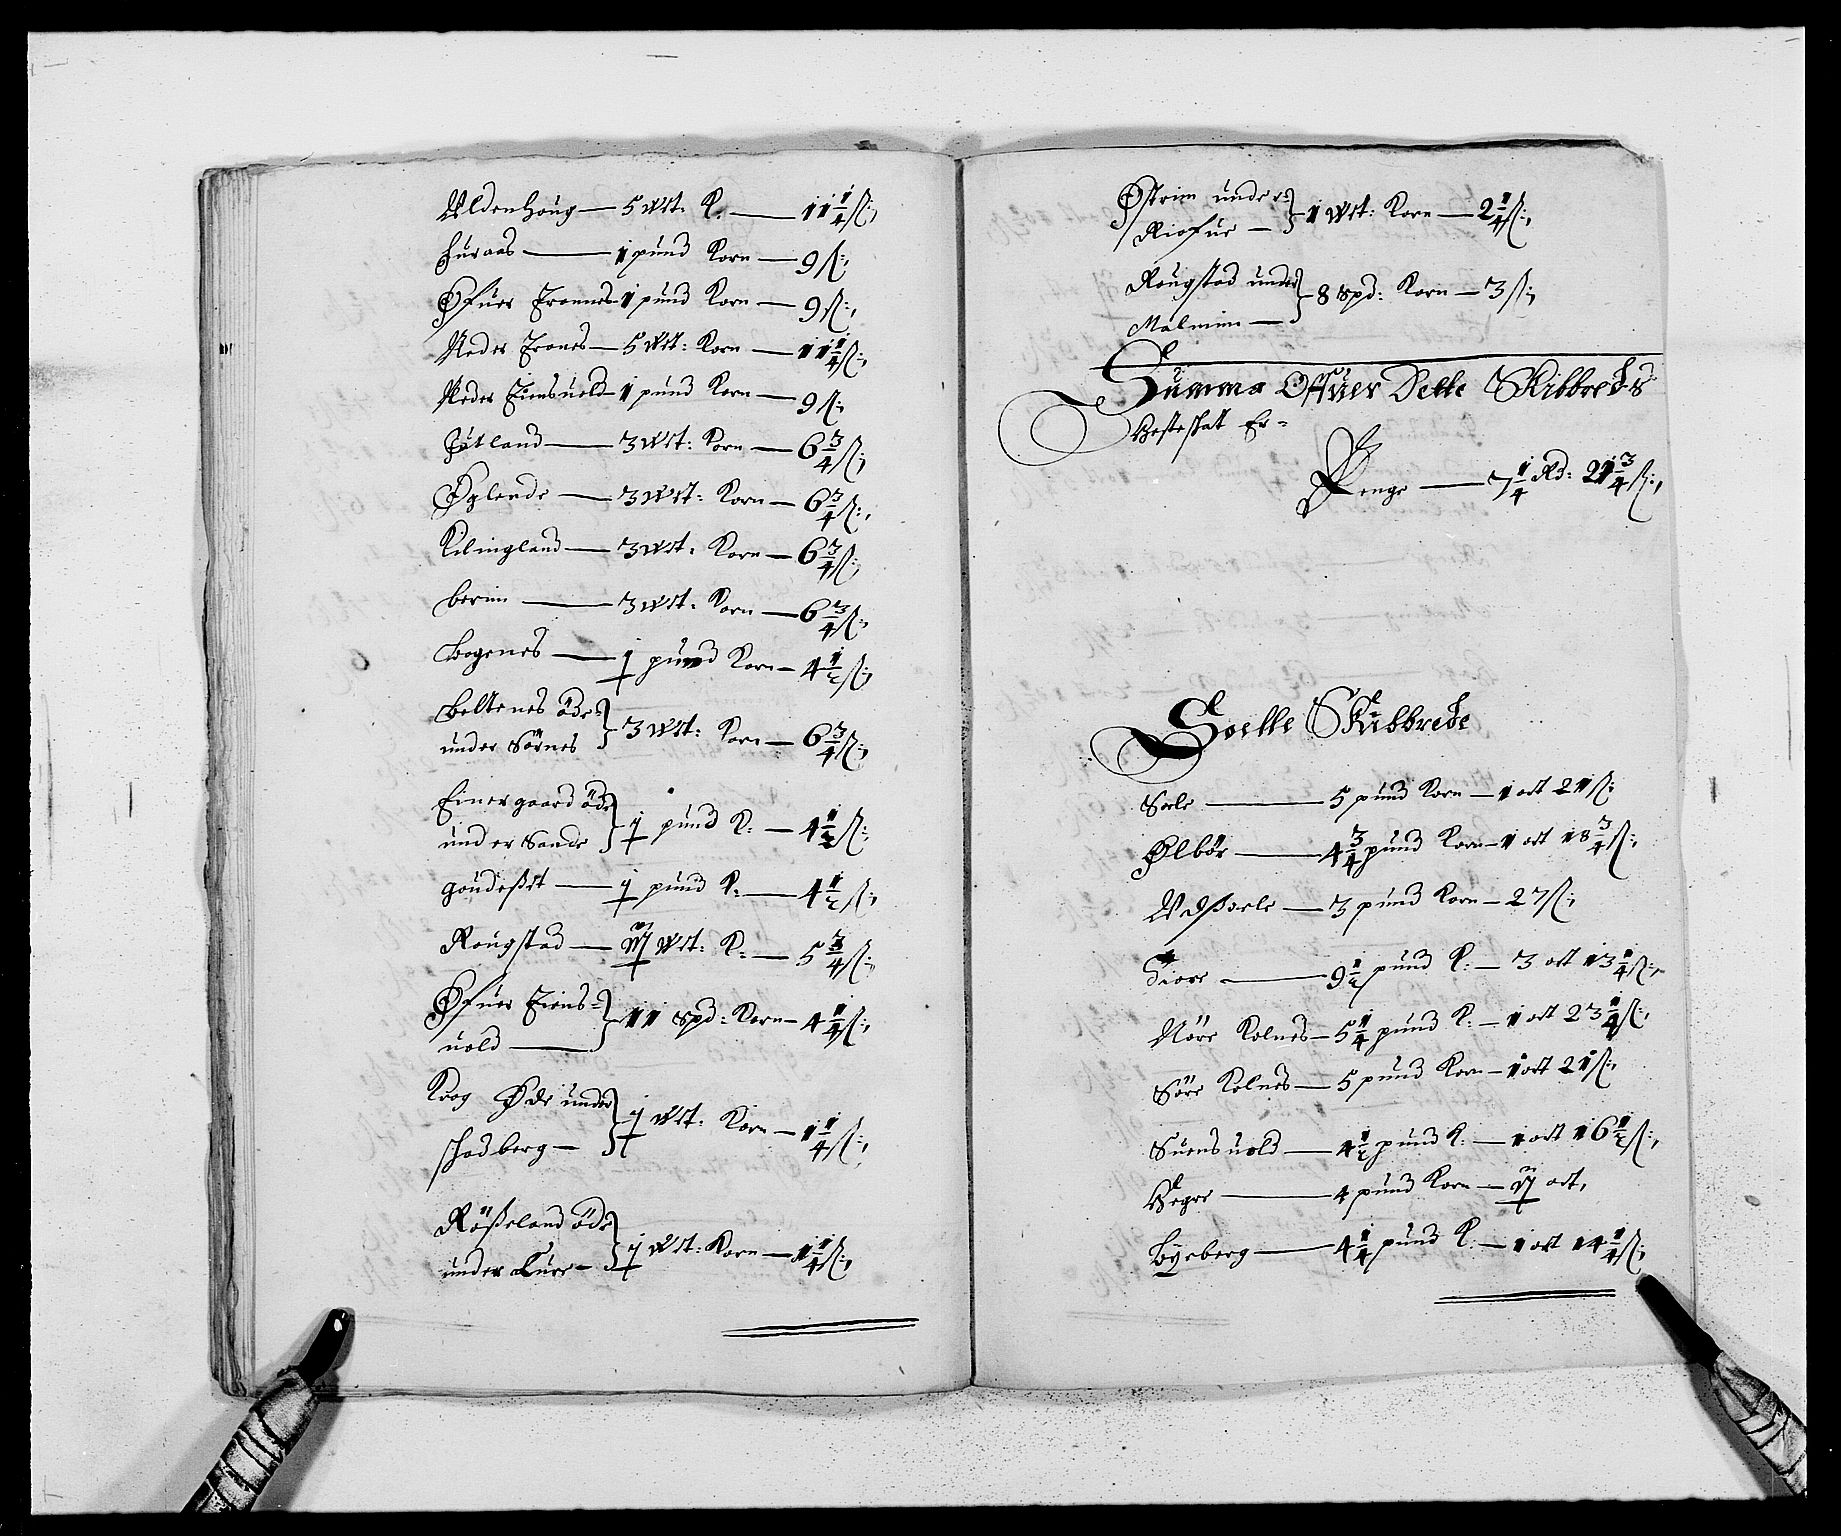 Uldenhoug — 5 wet: K: — 11 1/4 ß:
Furaas — 1 pund Korn — 9 ß:
Øfuer Tronnes 1 pund Korn — 9 ß:
Neder Trones — 5 wet: Korn — 11 1/4 ß:
Neder Eiensuold 1 pund Korn — 9 ß:
Jøtland — 3 wet: Korn — 6 3/4 ß:
Øglende — 3 wet: Korn — 6 3/4 ß:
Kilingland — 3 wet: Korn — 6 3/4 ß:
berim — 3 wet: Korn — 6 3/4 ß:
Bogenes — j pund Korn — 4 1/2 ß:
Beltenes öde
under Sörnes } 3 wet: Korn — 6 3/4 ß:
Einergaard öde
under Sande } j pund K: — 4 1/2 ß:
goudeset — j pund K: — 4 1/2 ß:
Rougstad — iij wet: K: — 5 3/4 ß:
Øfuer Eiens-
uold } 11 spd: Korn — 4 1/4 ß:
Krog Øde under
skadberg } j wet: Korn — 1 1/4 ß:
Rößeland öde
under Lure } j wet: Korn — 1 1/4 ß:
Østrim under
Riofue } 1 wet: Korn — 2 1/4 ß:
Rougstad under
Malmim } 8 spd: Korn — 3 ß:
Summa Offuer Dette Skibbreds
Hesteskat Er-
Penge — 7 1/4 Rd: 21 3/4 ß:
Soelle Skibbrede
Soele — 5 pund Korn — 1 ort 21 ß:
Ølbör — 4 3/4 pund Korn — 1 ort 18 3/4 ß:
Udsoele — 3 pund Korn — 27 ß:
Tiore — 9 1/2 pund K: — 3 ort 13 1/4 ß:
Nöre Kolnes — 5 1/4 pund K: — 1 ort 23 1/4 ß:
Söre Kolnes — 5 pund Korn — 1 ort 21 ß:
Suensuold — 4 1/2 pund K: — 1 ort 16 1/2 ß:
Hegre — 4 pund Korn — ij ort,
Byeberg — 4 1/4 pund K: — 1 ort 14 1/4 ß: